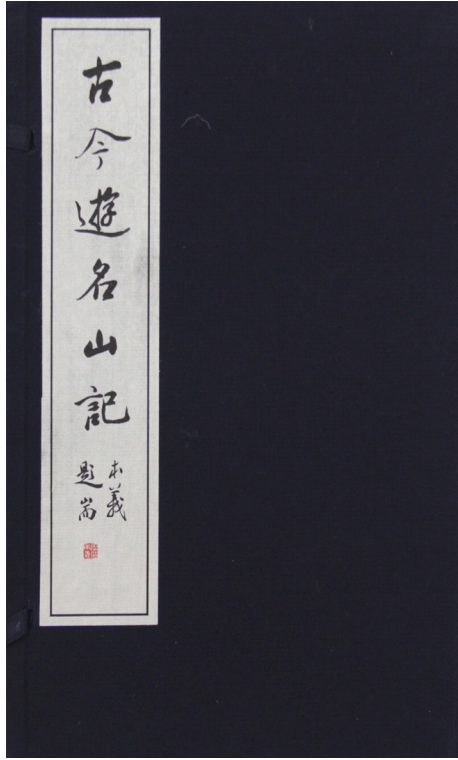 古今遊名山記
本義
題耑